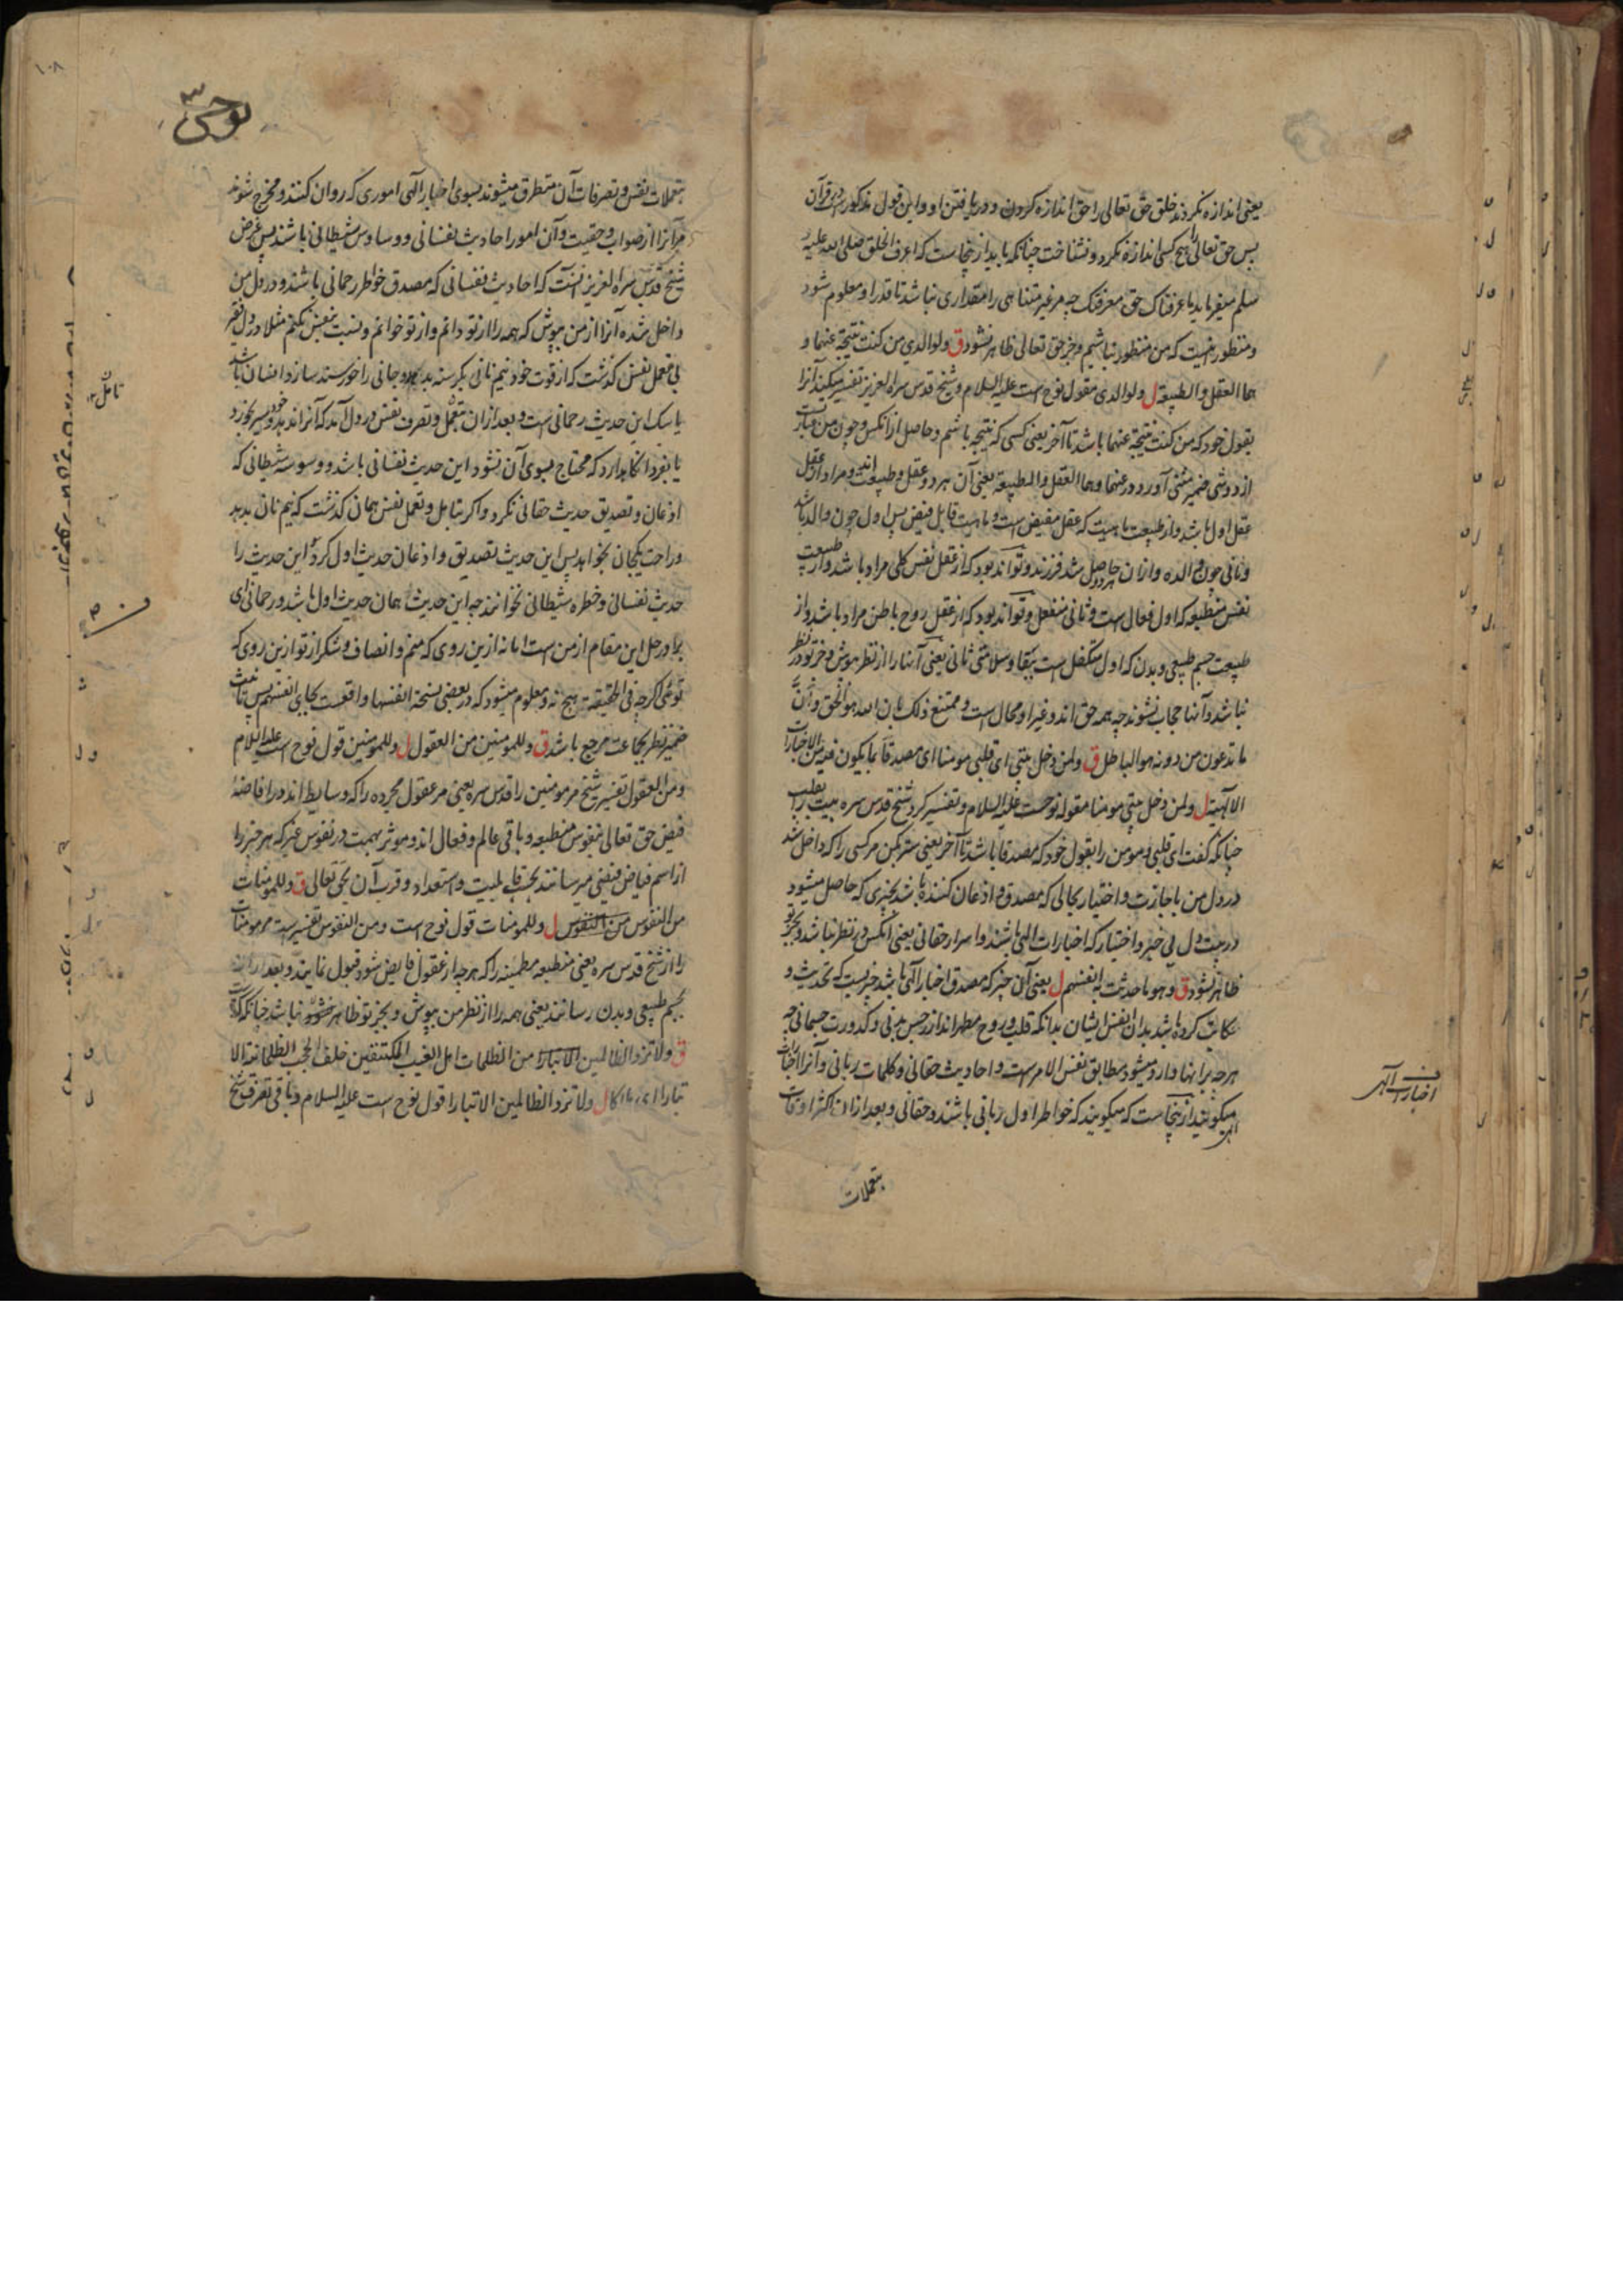 یعنی اندازه نکردند خلق حق تعالی را حق اندازه کردن و دریافتن او و این قول مذکور است در قرآن
پس حق تعالی را هیچ کسی اندازه نکرد و نشناخت چنانکه باید از ینجاست که اعرف الخلق صلی الله علیه
سلم میفرماید ما عرفناک حق معرفتک چه مر غیر متناهی را مقداری نباشد تا قدر او معلوم شود
و منظور نیست که من منظور نباشیم و جز حق تعالی ظاهر نشود ق ولوالدی من کنت نتیجة عنهما و
هما العقل والطبیعة ل ولوالدی مقول نوح است علیه السلام و شیخ قدس سره العزیز تفسیر میکند آنرا
بقول خود که من کنت نتیجة عنهما باشد تا آخر یعنی کسی که نتیجه باشم و حاصل از انکس و چون من عبارتست
از دو شی ضمیر مثنی آورد در عنهما و هما العقل والطبیعة یعنی آن هر دو عقل و طبیعت اند و مراد از عقل
عقل اول باشد و از طبیعت ماهیت که عقل مفیض است و ماهیت قابل فیض پس اول چون والد باشد
و ثانی چون والده و از ان هر دو حاصل شد فرزند و تواند بود که از عقل نفس کلی مراد باشد و از طبیعت
نفس منطبعه که اول فعال است و ثانی منفعل و تواند بود که از عقل روح باطن مراد باشد و از
طبیعت جسم طبیعی و بدن که اول متکفل است ببقا و سلامتی ثانی یعنی آنها را از نظر بپوش و جز تو در نظر
نباشد و آنها حجاب نشوند چه همه حق اند و غیر او محال است و ممتنع ذلک بان الله هو الحق و أنّ
ما تدعون من دونه هو الباطل ق ولمن دخل بیتی ای قلبی مومنا ای مصدقا بما یکون فیه من الاخبارات
الالهیة ل ولمن دخل بیتی مومنا مقوله نوحست علیه السلام و تفسیر کرد شیخ قدس سره بیت را بقلب
چنانکه گفت ای قلبی و مومن را بقول خود که مصدقا باشد تا آخر یعنی ستر کن مر کسی را که داخل شد
در دل من با جازت و اختیار بحالی که مصدق و اذعان کننده باشد بچیزی که حاصل میشود
در بیت دل بی جبر و اختیار که اخبارات الهی باشند و اسرار حقانی یعنی آنکس در نظر نباشد و بجز تو
ظاهر نشود ق وهو ما حدثت به انفسهم ل یعنی آن چیز که مصدق اخبار الهی باشد چیزیست که تحدیث و
حکایت کرده باشد بدان انفس ایشان بدانکه قلب و روح مطهر اند از رجس بدنی و کدورت جسمانی چه
هر چه بر آنها وارد میشود مطابق نفس الامر است و احادیث حقانی و کلمات ربانی و آنرا اخبارات
الهی میگویند از ینجاست که میگویند که خواطر اول ربانی باشند و حقانی و بعد از ان اکثر اوقات
بتعملات
اخبارات الهی
۱۰۸
نوحی
بتعملات نفس و تصرفات آن متطرق میشوند بسوی اخبار الهی اموری که روان کنند و مخرج شوند
مر آنرا از صواب و حقیت و آن امور احادیث نفسانی و وساوس شیطانی باشند پس غرض
شیخ قدس سره العزیز آنست که احادیث نفسانی که مصدق خواطر رحمانی باشند و در دل من
داخل شده آنرا از من بپوش که همه را از تو دانم و از تو خوانم و نسبت بنفس نکنم مثلا در دل فقیر
بی تعمل نفس گذشت که از قوت خود نیم نانی بگرسنه بدهد و جانی را خورسند سازد انسان باشد
یا سگ این حدیث رحمانی است و بعد از ان بتعمل و تصرف نفس در دل آمد که آنرا ندهد و خود سیر بخورد
یا بفردا نگاهدارد که محتاج بسوی آن نشود این حدیث نفسانی باشد و وسوسه شیطانی که
اذعان و تصدیق حدیث حقانی نکرد و اگر بتامل و تعمل نفس همان گذشت که نیم نان بدهد
و راحت یکجان بخواهد پس این حدیث تصدیق و اذعان حدیث اول کرد و این حدیث را
حدیث نفسانی و خطره شیطانی نخوانند چه این حدیث همان حدیث اول باشد و رحمانی
برادر حل این مقام از من است اما نه ازین روی که منم و انصاف و شکر از تو ازین روی که
توئی اگر چه فی الحقیقة هیچ نه و معلوم میشود که در بعضی نسخه انفسها واقعست بجای انفسهم پس تانیث
ضمیر نظر بجماعت مرجع باشد ق وللمومنین من العقول ل وللمومنین قول نوح است علیه السلام
و من العقول تفسیر شیخ مر مومنین را قدس سره یعنی مر عقول مجرده را که وسایط اند در افاضهٔ
فیض حق تعالی بنفوس منطبعه و باقی عالم و فعال اند و موثر بهمت در نفوس غیر که هر چیز را
از اسم فیاض فیضی میرسانند بحسب قابلیت و استعداد و قرب آن بحق تعالی ق وللمومنات
من النفوس من النفوس ل وللمومنات قول نوح است و من النفوس تفسیر است مر مومنات
را از شیخ قدس سره یعنی منطبعه مطمینه را که هر چه از عقول فایض شود قبول نمایند و بعد از ان
بجسم طبیعی و بدن رسانند یعنی همه را از نظر من بپوش و بجز تو ظاهر نباشد چنانکه گذشت
ق ولا تزد الظالمین الا تبارا من الظلمات اهل الغیب المکتنفین خلف الحجب الظلمانیة الا
تبارا ای هلاکا ل ولا تزد الظالمین الا تبارا قول نوح است علیه السلام و باقی تصرف شیخ
تامل